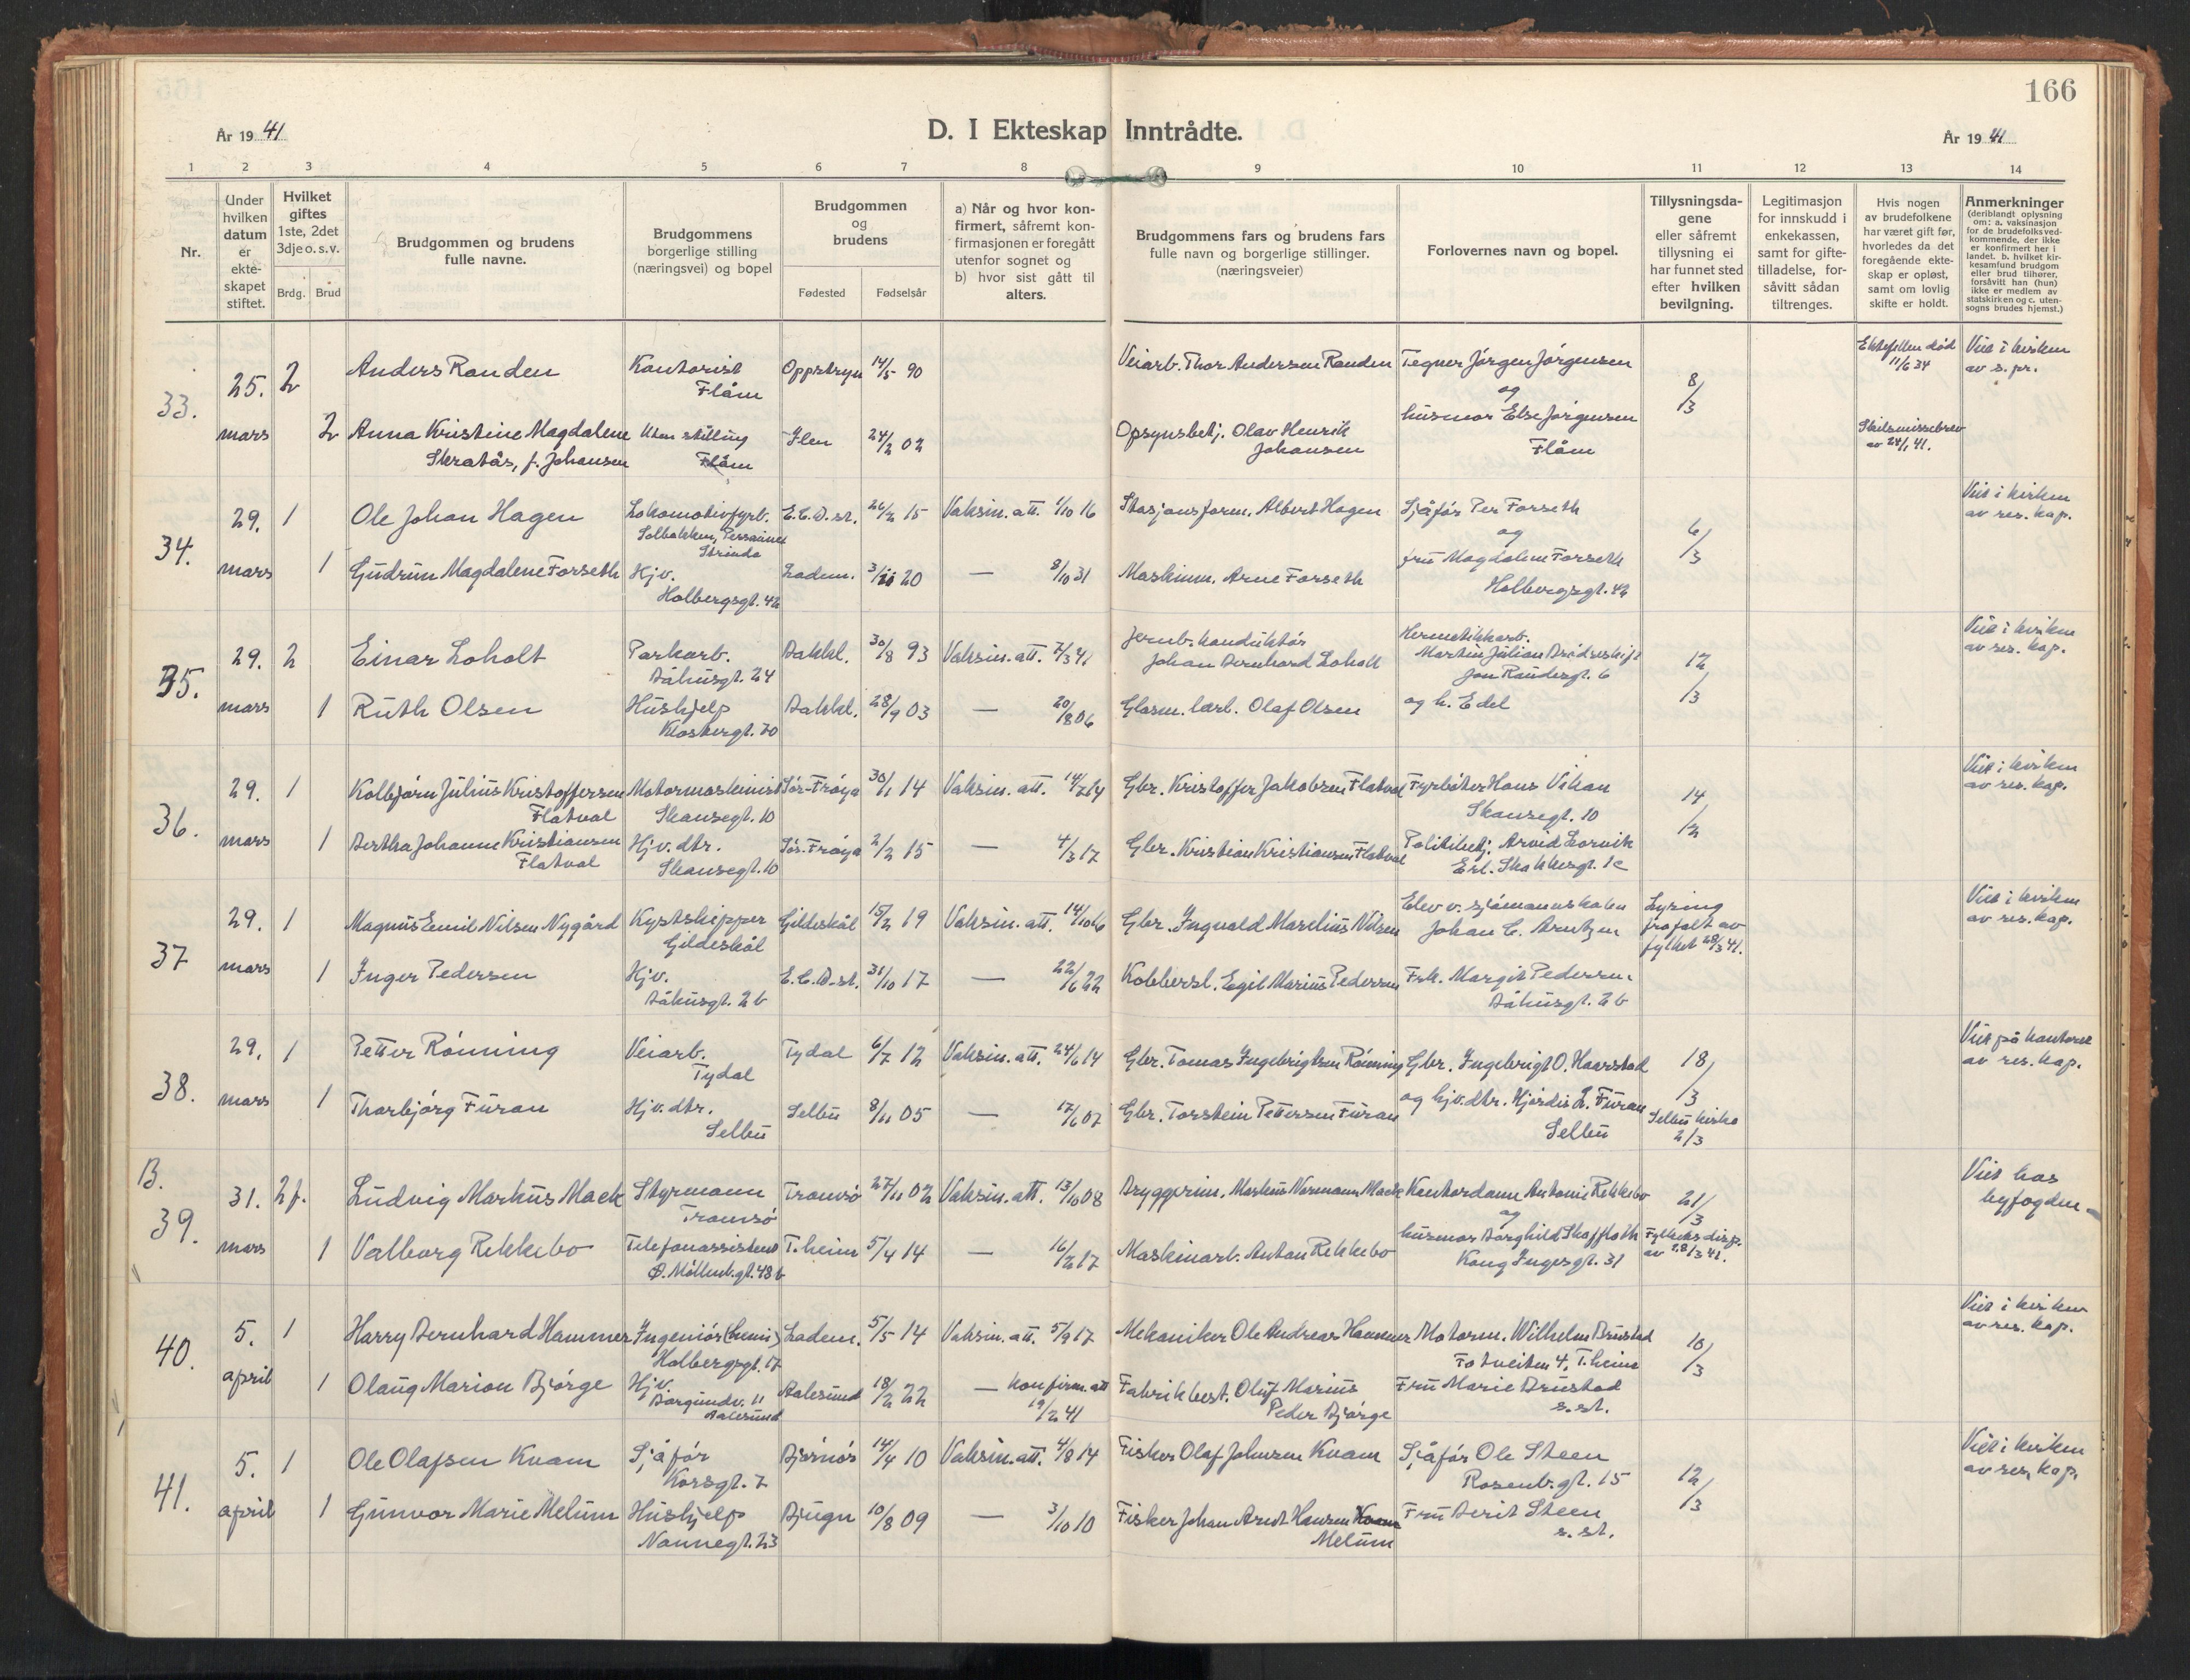 166
År 19 41
D. I Ekteskap Inntrådte.
År 19 41
1 2 3 4 5 6 7 8 9 10 11 12 13 14
Nr.
Under hvilken datum er ekteskapet stiftet.
Hvilket giftes 1ste, 2det 3dje o. s. v.
Brdg. Brud
Brudgommen og brudens fulle navne.
Brudgommens borgerlige stilling (næringsvei) og bopel
Brudgommen og brudens
Fødested Fødselsår
a) Når og hvor konfirmert, såfremt konfirmasjonen er foregått utenfor sognet og
b) hvor sist gått til alters.
Brudgommens fars og brudens fars fulle navn og borgerlige stillinger. (næringsveier)
Forlovernes navn og bopel.
Tillysningsdagene eller såfremt tillysning ei har funnet sted efter hvilken bevilgning.
Legitimasjon for innskudd i enkekassen, samt for giftetilladelse, forsåvitt sådan tiltrenges.
Hvis nogen av brudefolkene har været gift før, hvorledes da det foregående ekteskap er opløst, samt om lovlig skifte er holdt.
Anmerkninger (deriblandt oplysning om: a. vaksinasjon for de brudefolksvedkommende, der ikke er konfirmert her i landet. b. hvilket kirkesamfund brudgom eller brud tilhører, forsåvitt han (hun) ikke er medlem av statskirken og c. utensogns brudes hjemst.)
33. 25. mars 2 Anders Randen Kontorist Flåm Oppstryn 14/5 90 Veiarb. Thor Andersen Randen Tegner Jørgen Jørgensen og husmor Else Jørgensen Flåm 8/3 Ektefellen død 11/6 34 Viet i kirken av s. pr.
2 Anna Kristine Magdalene Skratås, f. Johansen Uten stilling Flåm Ilen 24/2 02 Opsynsbetj. Olav Henrik Johansen Skilsmissebrev av 24/1 41.
34. 29. mars 1 Ole Johan Hagen Lokomotivfyrb. Solbakken, Persaunet Strinda E.C.D. st. 26/2 15 Vaksin. att. 1/10 16 Stasjonsform. Albert Hagen Sjåfør Per Forseth og fru Magdalene Forseth Holbergsgt. 42 6/3 Viet i kirken av res. kap.
1 Gudrun Magdalene Forseth Hjv. Holbergsgt. 42 Ladem. 3/11 20 — 8/10 31 Maskinm. Arne Forseth
35. 29. mars 2 Einar Loholt Parkarb. Båhusgt. 24 Bakkl. 30/8 93 Vaksin. att. 7/3 41 Jernb. konduktør Johan Bernhard Loholt Hermetikkarb. Martin Julian Bredeskift Jon Raudesgt. 6 og h. Edel 12/3 Viet i kirken av res. kap.
1 Ruth Olsen Hushjelp Klostergt. 70 Bakkl. 28/9 03 — 20/8 06 Glasm. lærl. Olaf Olsen
36. 29. mars 1 Kolbjørn Julius Kristoffersen Flatval Motormaskinist Skansegt. 10 Sør-Frøya 30/1 14 Vaksin. att. 14/7 14 Gbr. Kristoffer Jakobsen Flatval Fyrbøter Hans Vikan Skansegt. 10 14/12 Viet i kirken av res. kap.
1 Bertha Johanne Kristiansen Flatval Hjv. dtr. Skansegt. 10 Sør-Frøya 2/2 15 — 4/3 17 Gbr. Kristian Kristiansen Flatval Politibetj. Arvid Lorvik Erl. Skakkesgt. 1c
37 29. mars 1 Magnus Emil Nilsen Nygård Kystskipper Gildeskål Gildeskål 15/2 19 Vaksin. att. Gbr. Ingvald Marelius Nilsen Elev v. sjømannsskolen Johan C. Arntzen Lysing frafalt av fylket 28/3 41. Viet i kirken av res. kap.
1 Inger Pedersen Hjv. Båhusgt. 2b E.C.D. st. 31/10 17 — 22/6 22 Kobbersl. Egil Marius Pedersen Frk. Margit Pedersen Båhusgt. 2b
38. 29. mars 1 Petter Rønning Veiarb. Tydal Tydal 6/7 12 Vaksin. att. 24/6 14 Gbr. Tomas Ingebrigtsen Rønning Gbr. Ingebrigt O. Haarstad og hjv. dtr. Hjørdis L. Furan Selbu 18/3 Selbu kirke 2/3 Viet på kontoret av res. kap.
1 Thorbjørg Furan Hjv. dtr. Selbu Selbu 8/11 05 — 17/6 07 Gbr. Torstein Pettersen Furan
B. 39. 31. mars 2 f. Ludvig Markus Mack Styrmann Tromsø Tromsø 27/11 02 Vaksin. att. 13/10 08 Bryggerim. Markus Normann Mack Kontordame Antonie Rekkebo og husmor Borghild Skaffloth Kong Ingesgt. 31 21/3 Fylkets disp. av 28/3 41. Viet hos byfogden
1 Valborg Rekkebo Telefonassistent Ø. Møllenb.gt. 48b T.heim 5/4 14 — 16/2 17 Maskinarb. Anton Rekkebo
40. 5. april 1 Harry Bernhard Hammer Ingeniør (kemi) Holbergsgt. 17 Ladem. 5/5 14 Vaksin. att. 5/9 17 Mekaniker Ole Andreas Hammer Motorm. Wilhelm Brustad Fotveiten 4, T.heim Fru Marie Brustad s. st. 10/3 Viet i kirken av res. kap.
1 Olaug Marion Bjørge Hjv. Borgundv. 11 Aalesund Aalesund 18/2 22 — Konfirm. att 19/2 41 Fabrikbest. Oluf Marius Peder Bjørge
41. 5. april 1 Ole Olafsen Kvam Sjåfør Korsgt. 7 Bjørnør 14/4 10 Vaksin. att. 4/8 14 Fisker Olaf Johnsen Kvam Sjåfør Ole Steen Rosenb.gt. 15 12/3 Viet i kirken av res. kap.
1 Gunvor Marie Melum Hushjelp Nonnegt. 23 Bjugn 10/8 09 — 3/10 10 Fisker Johan Arnt Hansen Melum Fru Berit Steen s. st.